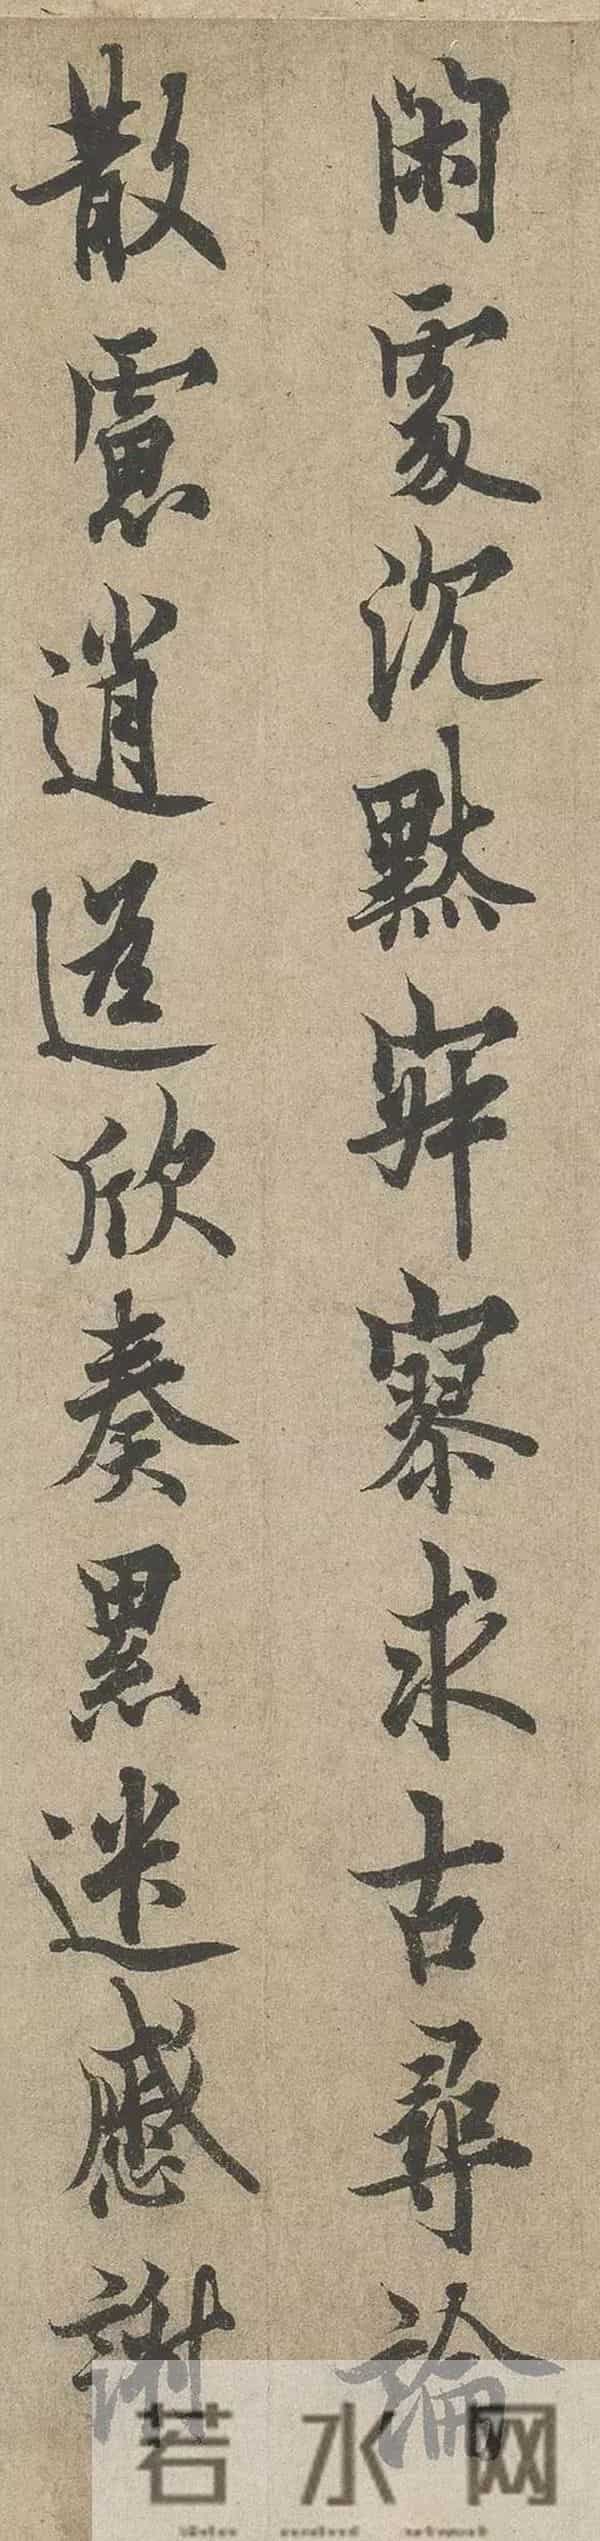 閑處沉默寂寥求古尋論
散慮逍遙欣奏累遣慼謝
若水网